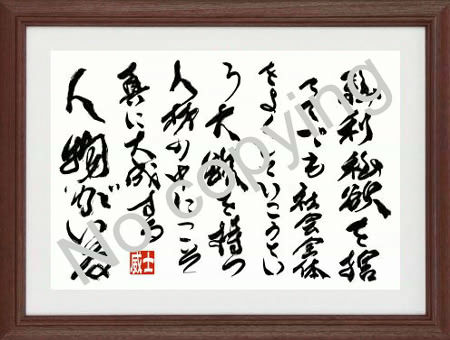 私利私欲を捨
てても社会全体
をよくしていこうとい
う大を持つ
人の中にこそ
真に大成する
人物がいる
No copying